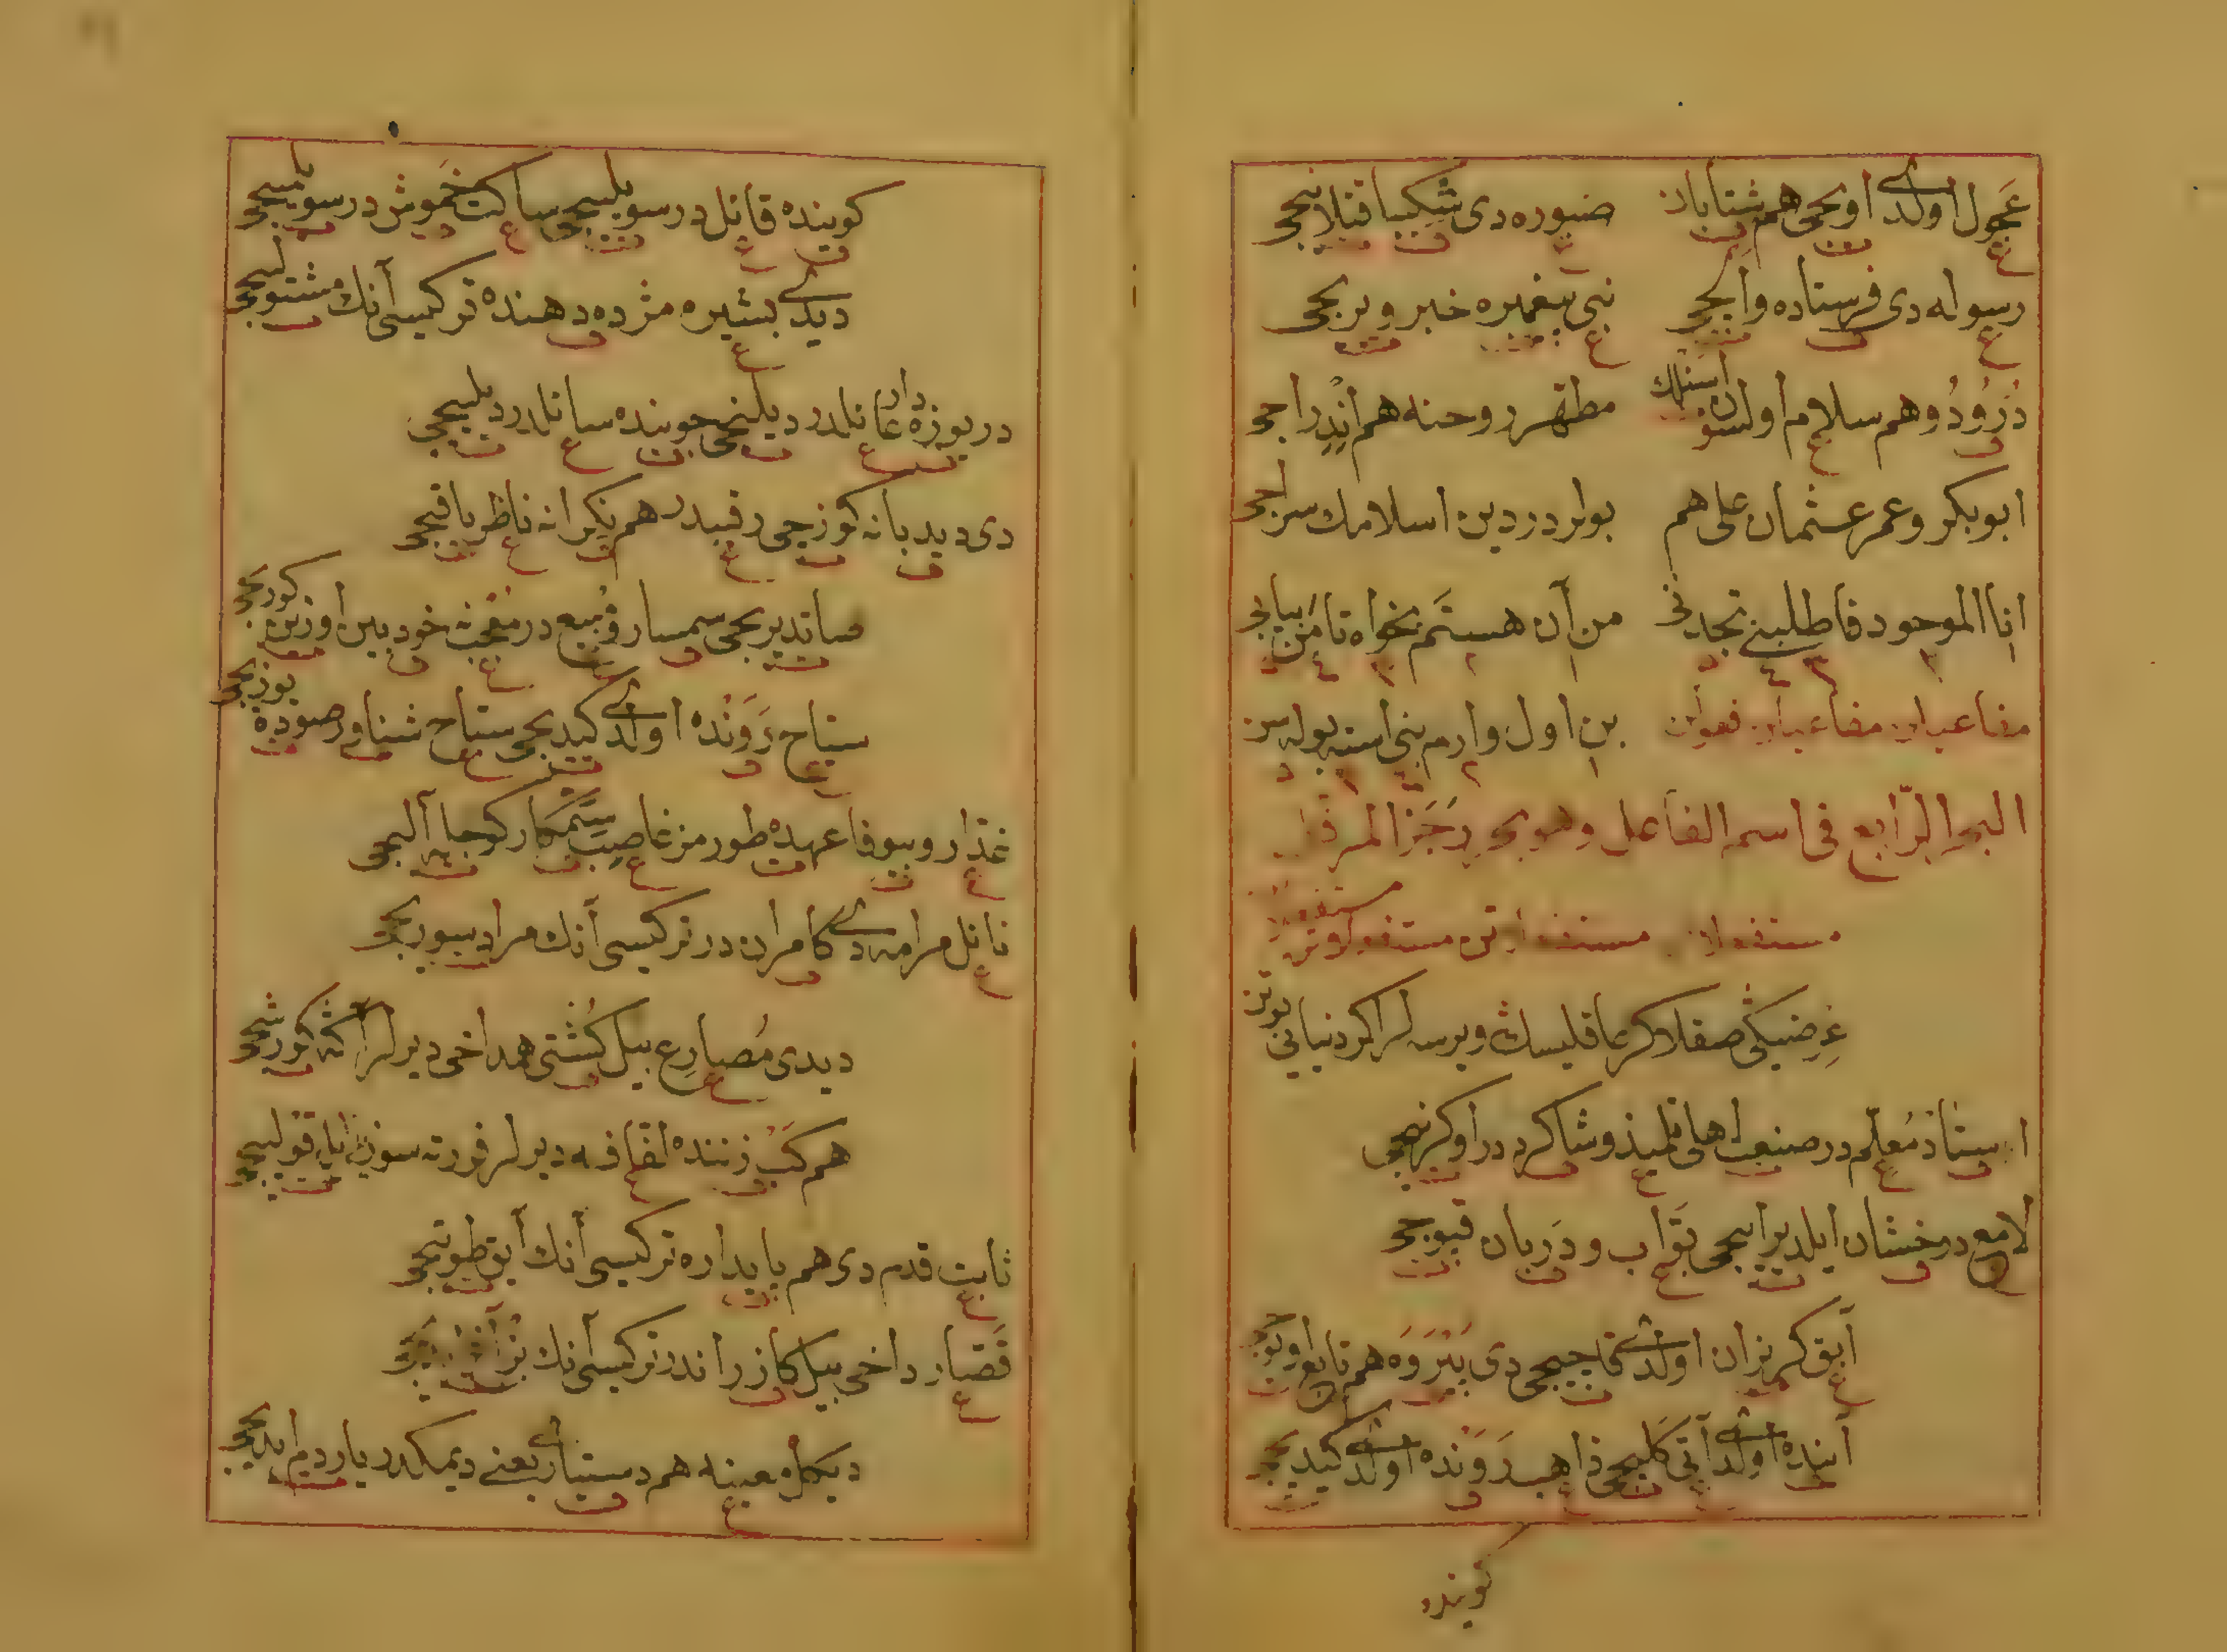 عجول اولدی اوبجی هم شتابان صبوره دی شکیبا قتلانجی
رسوله دی فرستاده وابجی نبی پیغمبره خبر ویریجی
درود و هم سلام اولسون مطهر روحنه هم
ابو بکر و عمر عثمان علی هم بولردر دین اسلامك سراجی
انا الموجود فاطلبنی تجدنی من آن هستم بخواه تا من بیابی
مفاعیلن مفاعیلن فعولن بن اول وارم بنی استه بوله سن
البحر الرابع فی اسم الفاعل وهو بحر رجز المرفل
مستفعلن مستفعلاتن مستفعلاتن
عرضیکی صقلا کر عاقلیسك ویرسه لر اکر دنیایی
استاذ معلم در صنعت اهلی تلمیذ و شاکرد در اوکرنیجی
لامع درخشان ایلدیرایجی بواب و دربان قپوجی
آبق کریزان اولدی قاچیجی دی پیروه هم تابع
آینده اولدی آتی کلیجی ذاهب رونده اولدی کیدیجی
کوینده
کوینده قائل در سویلیجی ساکت خموش در
دیدی بشیره مژده دهنده ترکیسی آنك مشتولجی
در یوزه دار عائلدر دیلنجی جوینده سائلدر دیلیجی
دی دیدبانه کوزجی رقیبدر هم نکرانه ناظر باقیجی
صاتدیریجی سمسار و مبیع در معجب خود بین
سیاح رونده اولدی کیدیجی سباح شناور صوده یوزیجی
غدار و بیوفا عهده طورمز غاصب ستمکار کوجله آلیجی
نائل مرامه دی کامران در ترکیسی آنك مراد سوریجی
دیدی مصارع بیل کشتی همداخی دیرلر کورشجی
هم کب زننده لفافه دیرلر
ثابت قدم دی هم پایداره ترکیسی آنك آیق طوتیجی
قصار داخی بیل کازراندر ترکیسی آنك بز
دیکل معینه هم دستیار یعنی دیمکدر یاردم ایدیجی